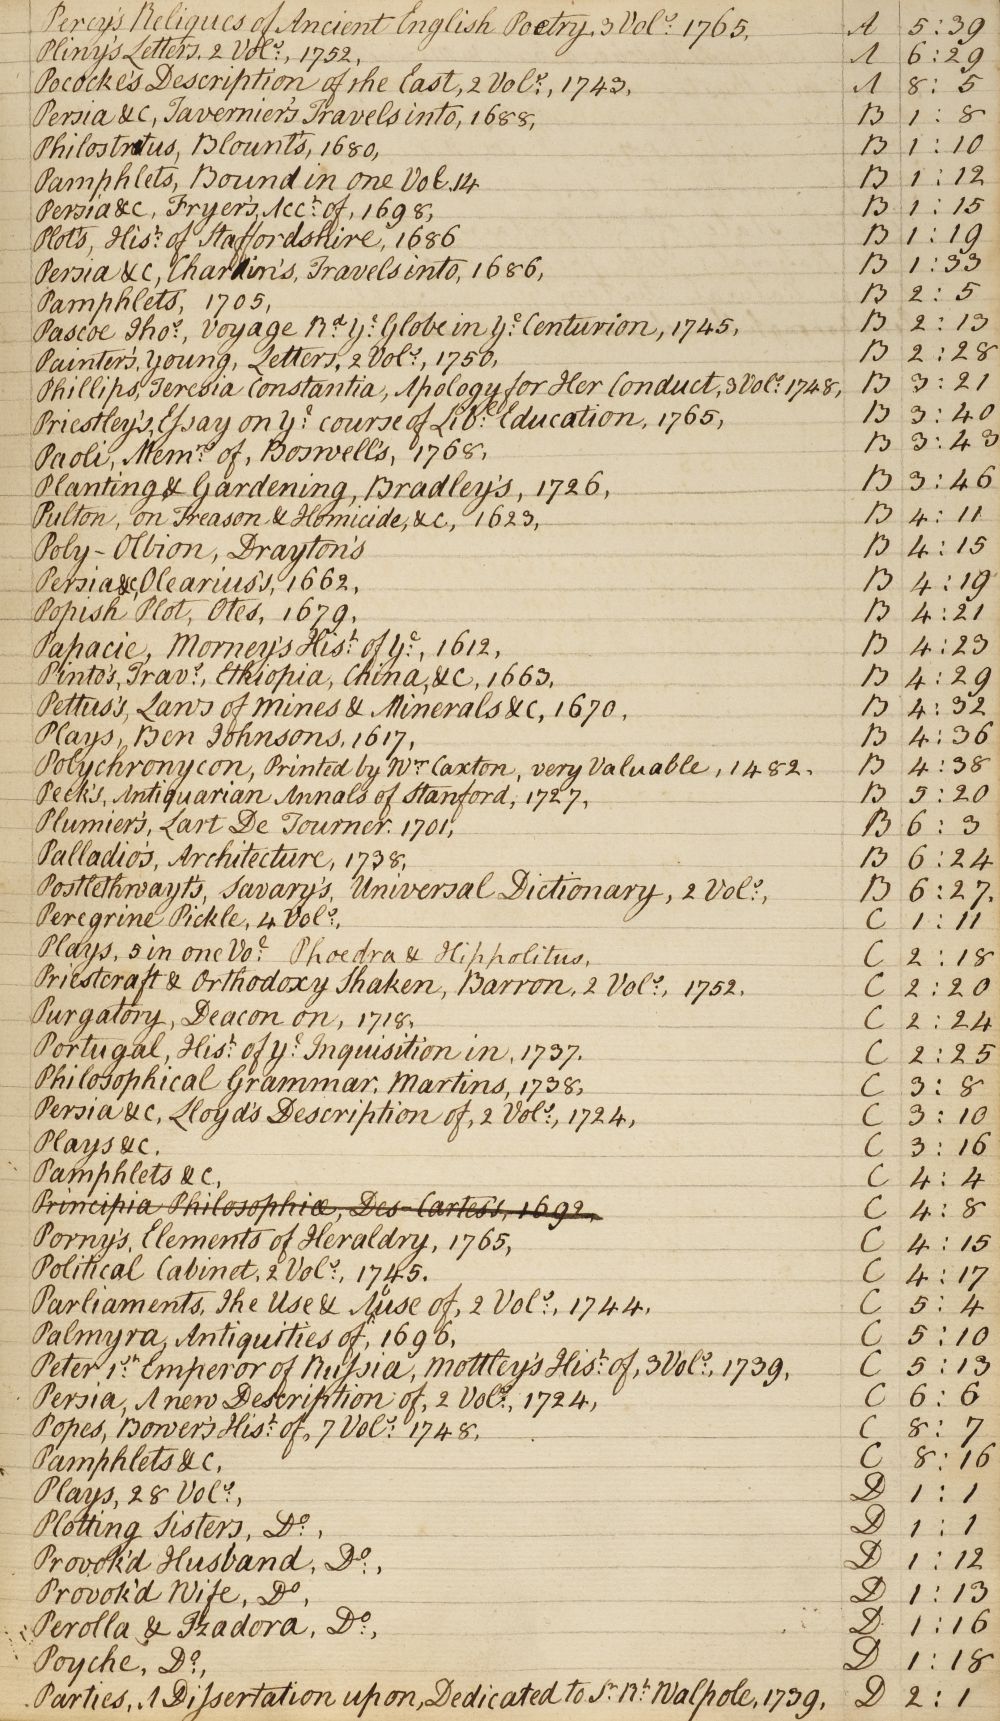 Percy's Reliques of Ancient English Poetry, 3 Vols. 1765, A 5:39
Pliny's Letters, 2 Vols., 1752, A 6:29
Pococke's Description of the East, 2 Vols., 1743, A 8:5
Persia &c, Tavernier's Travels into, 1688, B 1:8
Philostratus, Blount's, 1680, B 1:10
Pamphlets, Bound in one Vol. 14 B 1:12
Persia &c, Fryer's, Acct. of, 1698, B 1:15
Plot's, Hist. of Staffordshire, 1686 B 1:19
Persia &c, Chardin's, Travels into, 1686, B 1:33
Pamphlets, 1705, B 2:5
Pascoe Thos., Voyage Rd. Ye. Globe in Ye. Centurion, 1745, B 2:13
Painter's, Young, Letters, 2 Vols., 1750, B 2:28
Phillips, Teresia Constantia, Apology for Her Conduct, 3 Vols. 1748, B 3:21
Priestley's, Essay on Ye. course of Libl. Education, 1765, B 3:40
Paoli, Memrs. of, Boswell's, 1768, B 3:43
Planting & Gardening, Bradley's, 1726, B 3:46
Pulton, on Treason & Homicide, &c, 1623, B 4:11
Poly-Olbion, Drayton's B 4:15
Persia &c, Olearius's, 1662, B 4:19
Popish Plot, Otes, 1679, B 4:21
Papacie, Morney's Hist. of Ye., 1612, B 4:23
Pinto's, Travs., Ethiopia, China, &c, 1663, B 4:29
Pettus's, Laws of Mines & Minerals &c, 1670, B 4:32
Plays, Ben Johnsons, 1617, B 4:36
Polychronycon, Printed by Wm. Caxton, very Valuable, 1482. B 4:38
Peck's, Antiquarian Annals of Stanford, 1727, B 5:20
Plumier's, Lart De Tourner. 1701, B 6:3
Palladio's, Architecture, 1738, B 6:24
Postlethwayt's, Savary's, Universal Dictionary, 2 Vols., B 6:27.
Peregrine Pickle, 4 Vols. C 1:11
Plays, 5 in one Vol. Phoedra & Hippolitus, C 2:18
Priestcraft & Orthodoxy Shaken, Barron, 2 Vols., 1752. C 2:20
Purgatory, Deacon on, 1718, C 2:24
Portugal, Hist. of Ye. Inquisition in, 1737. C 2:25
Philosophical Grammar, Martins, 1738, C 3:8
Persia &c, Lloyd's Description of, 2 Vols., 1724, C 3:10
Plays &c. C 3:16
Pamphlets &c, C 4:4
Principia Philosophiæ, Des-Cartes's, 1692, C 4:8
Porny's, Elements of Heraldry, 1765, C 4:15
Political Cabinet, 2 Vols., 1745. C 4:17
Parliaments, The Use & Abuse of, 2 Vols., 1744, C 5:4
Palmyra, Antiquities of, 1696, C 5:10
Peter 1st. Emperor of Russia, Mottley's Hist. of, 3 Vols., 1739, C 5:13
Persia, A new Description of, 2 Vols., 1724, C 6:6
Popes, Bower's Hist. of, 7 Vols. 1748, C 8:7
Pamphlets &c, C 8:16
Plays, 28 Vols., D 1:1
Plotting Sisters, Do., D 1:1
Provok'd Husband, Do., D 1:12
Provok'd Wife, Do, D 1:13
Perolla & Izadora, Do., D 1:16
Psyche, Do., D 1:18
Parties, A Dissertation upon, Dedicated to Sr. Rt. Walpole, 1739, D 2:1